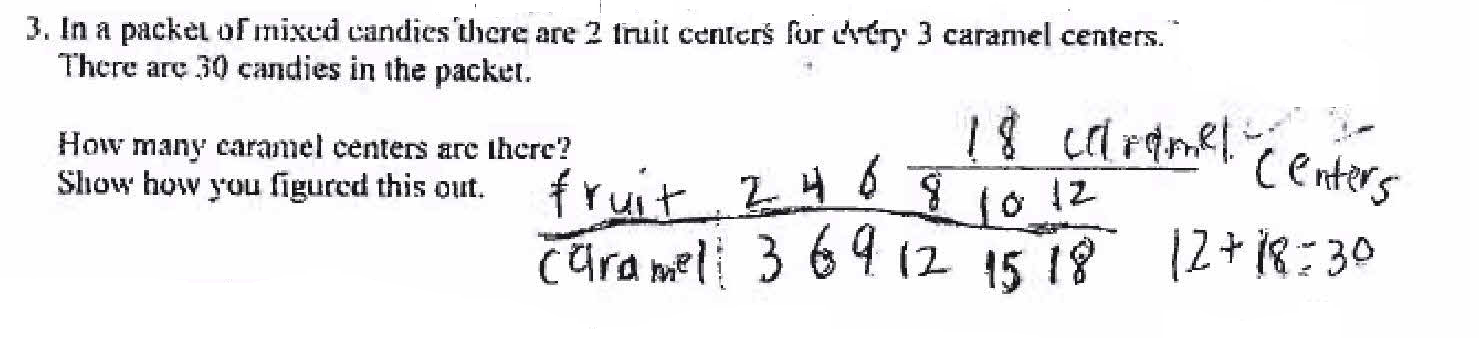 3. In a packet of mixed candies there are 2 fruit centers for every 3 caramel centers.
There are 30 candies in the packet.
How many caramel centers are there?
Show how you figured this out.
18 caramel centers
fruit 2 4 6 8 10 12
caramel 3 6 9 12 15 18
12+18=30